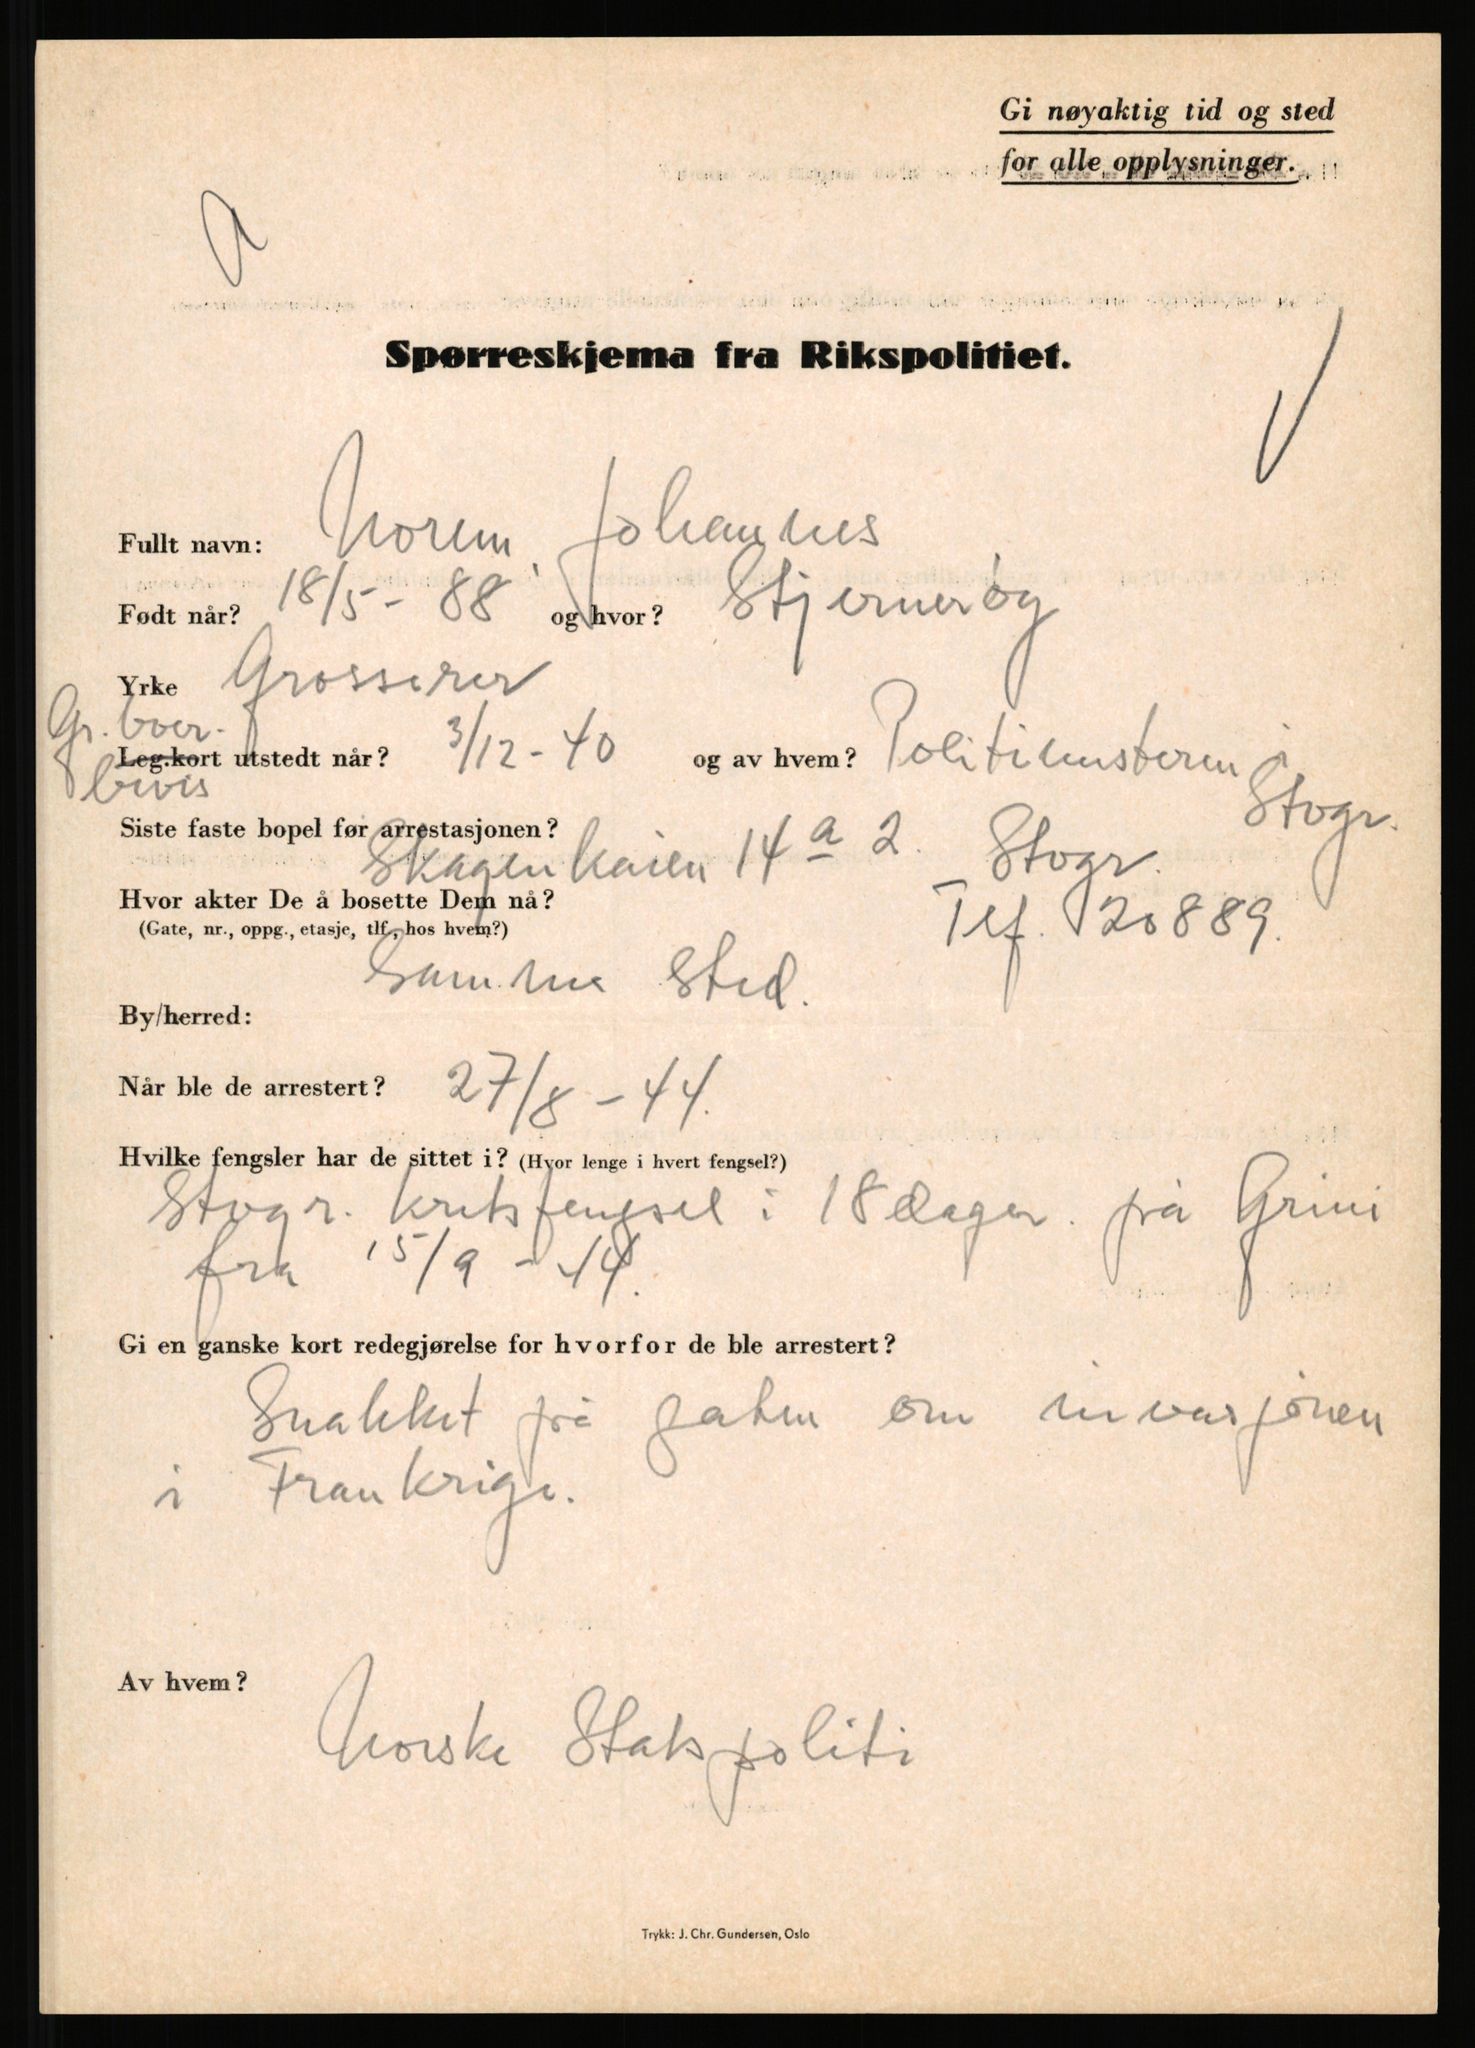 Gi nøyaktig tid og sted
for alle opplysninger.
Spørreskjema fra Rikspolitiet.
Fullt navn: Norem, Johannes
Født når? 18/5 - 88 og hvor? Stjernerøy
Yrke Grosserer
Gr. boer.
Leg.kort utstedt når? 3/12 - 40 og av hvem? Politimesteren i
bevis Stvgr.
Siste faste bopel før arrestasjonen?
Skagenkaien 14 a 2. Stvgr.
Hvor akter De å bosette Dem nå? Telf. 20889.
(Gate, nr., oppg., etasje, tlf., hos hvem?)
Samme sted.
By/herred:
Når ble de arrestert? 27/8 - 44.
Hvilke fengsler har de sittet i? (Hvor lenge i hvert fengsel?)
Stvgr. kretsfengsel i 18 dager. på Grini
fra 15/9 - 44.
Gi en ganske kort redegjørelse for hvorfor de ble arrestert?
Snakket på gaten om invasjonen
i Frankrige.
Av hvem?
Norske Statspoliti
Trykk: J. Chr. Gundersen, Oslo